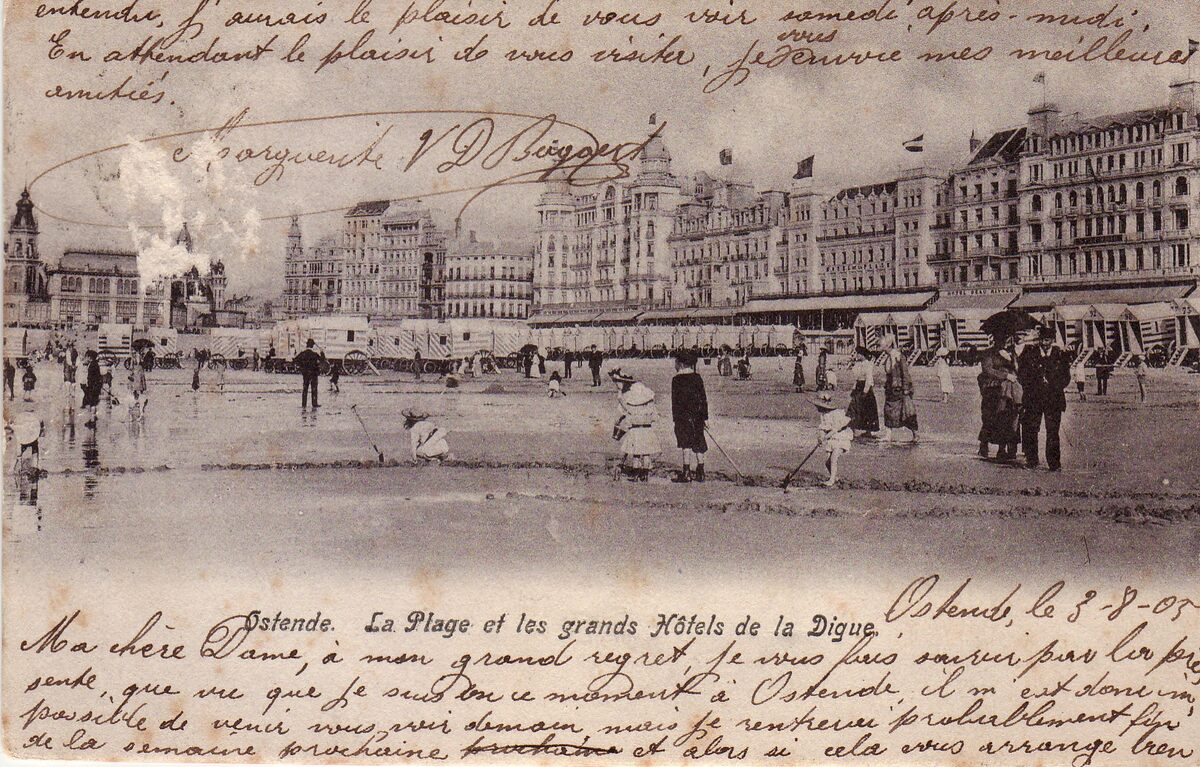 entendu, j'aurais le plaisir de vous voir samedi après-midi.
En attendant le plaisir de vous visiter, je vous envoie mes meilleures
amitiés.
Marguerite V D
Ostende. La Plage et les grands Hôtels de la Digue.
Ostende, le 3-8-05
Ma chère Dame, à mon grand regret, je vous fais savoir par la pré
sente, que vu que je suis en ce moment à Ostende, il m'est donc im
possible de venir vous voir demain, mais je rentrerai probablement fin
de la semaine prochaine prochaine et alors si cela vous arrange bien